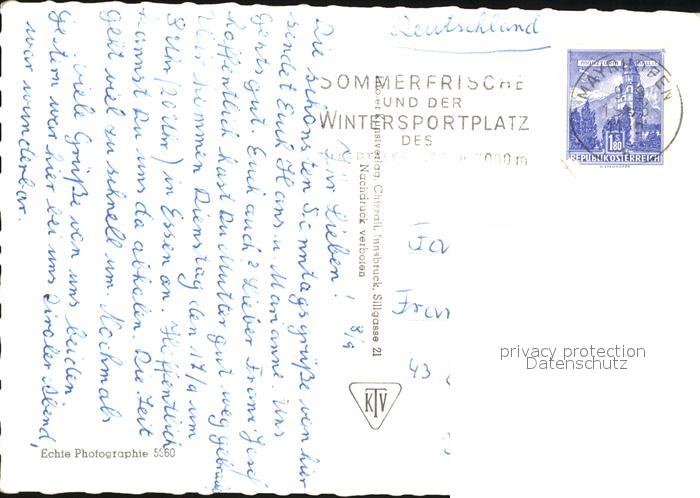 Deutschland
SOMMERFRISCHE
UND DER
WINTERSPORTPLATZ
DES
MAYRHOFEN
1.80
REPUBLIK ÖSTERREICH
8/9
Ihr Lieben!
Die schönsten Sonntagsgrüße von hier
sendet Euch Hans u. Marianne. Uns
gehts gut. Euch auch? Lieber Franz-Josef
hoffentlich hast Du Mutter gut weggebracht
Wir kommen Dienstag den 17/9 um
Uhr (20 Uhr) in Essen an. Hoffentlich
kannst Du uns da abholen. Die Zeit
geht viel zu schnell um. Nochmals
viele Grüße von uns beiden
Gestern war hier bei uns Tiroler Abend,
war wunderbar.
Kunstverlag Chizzali, Innsbruck, Sillgasse 21
Nachdruck verboten
KTV
Echte Photographie 5560
Fran
43
privacy protection
Datenschutz